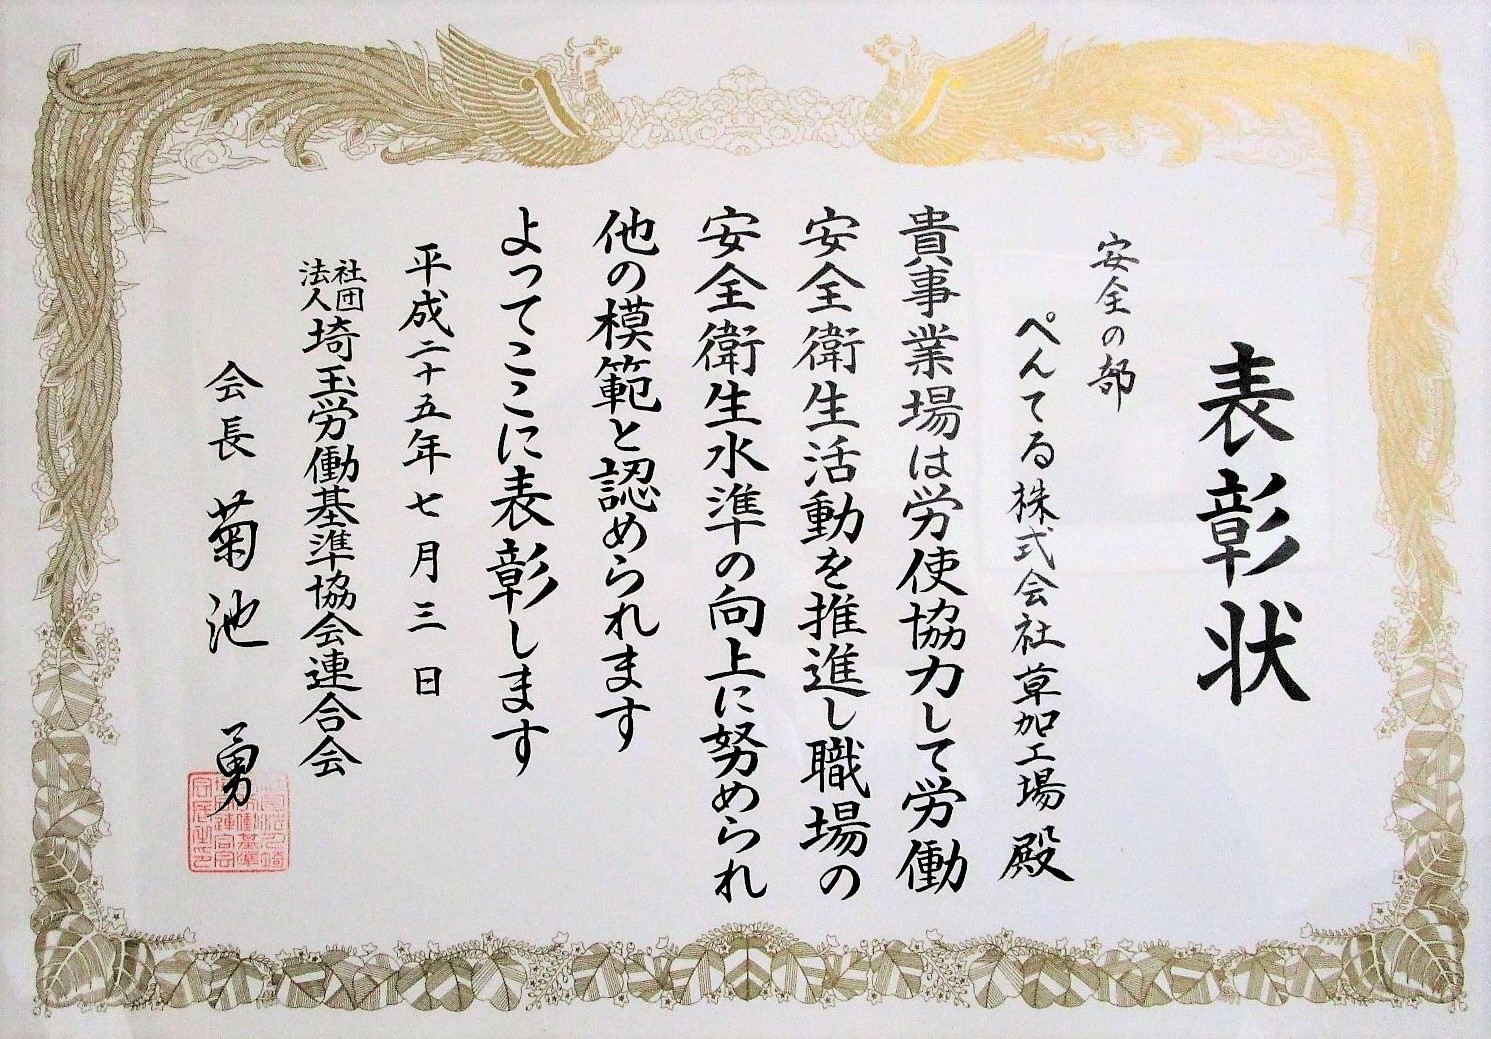 表彰状
安全の部
ぺんてる株式会社草加工場 殿
貴事業場は労使協力して労働
安全衛生活動を推進し職場の
安全衛生水準の向上に努められ
他の模範と認められます
よってここに表彰します
平成二十五年七月三日
社団法人埼玉労働基準協会連合会
会長 菊池 勇